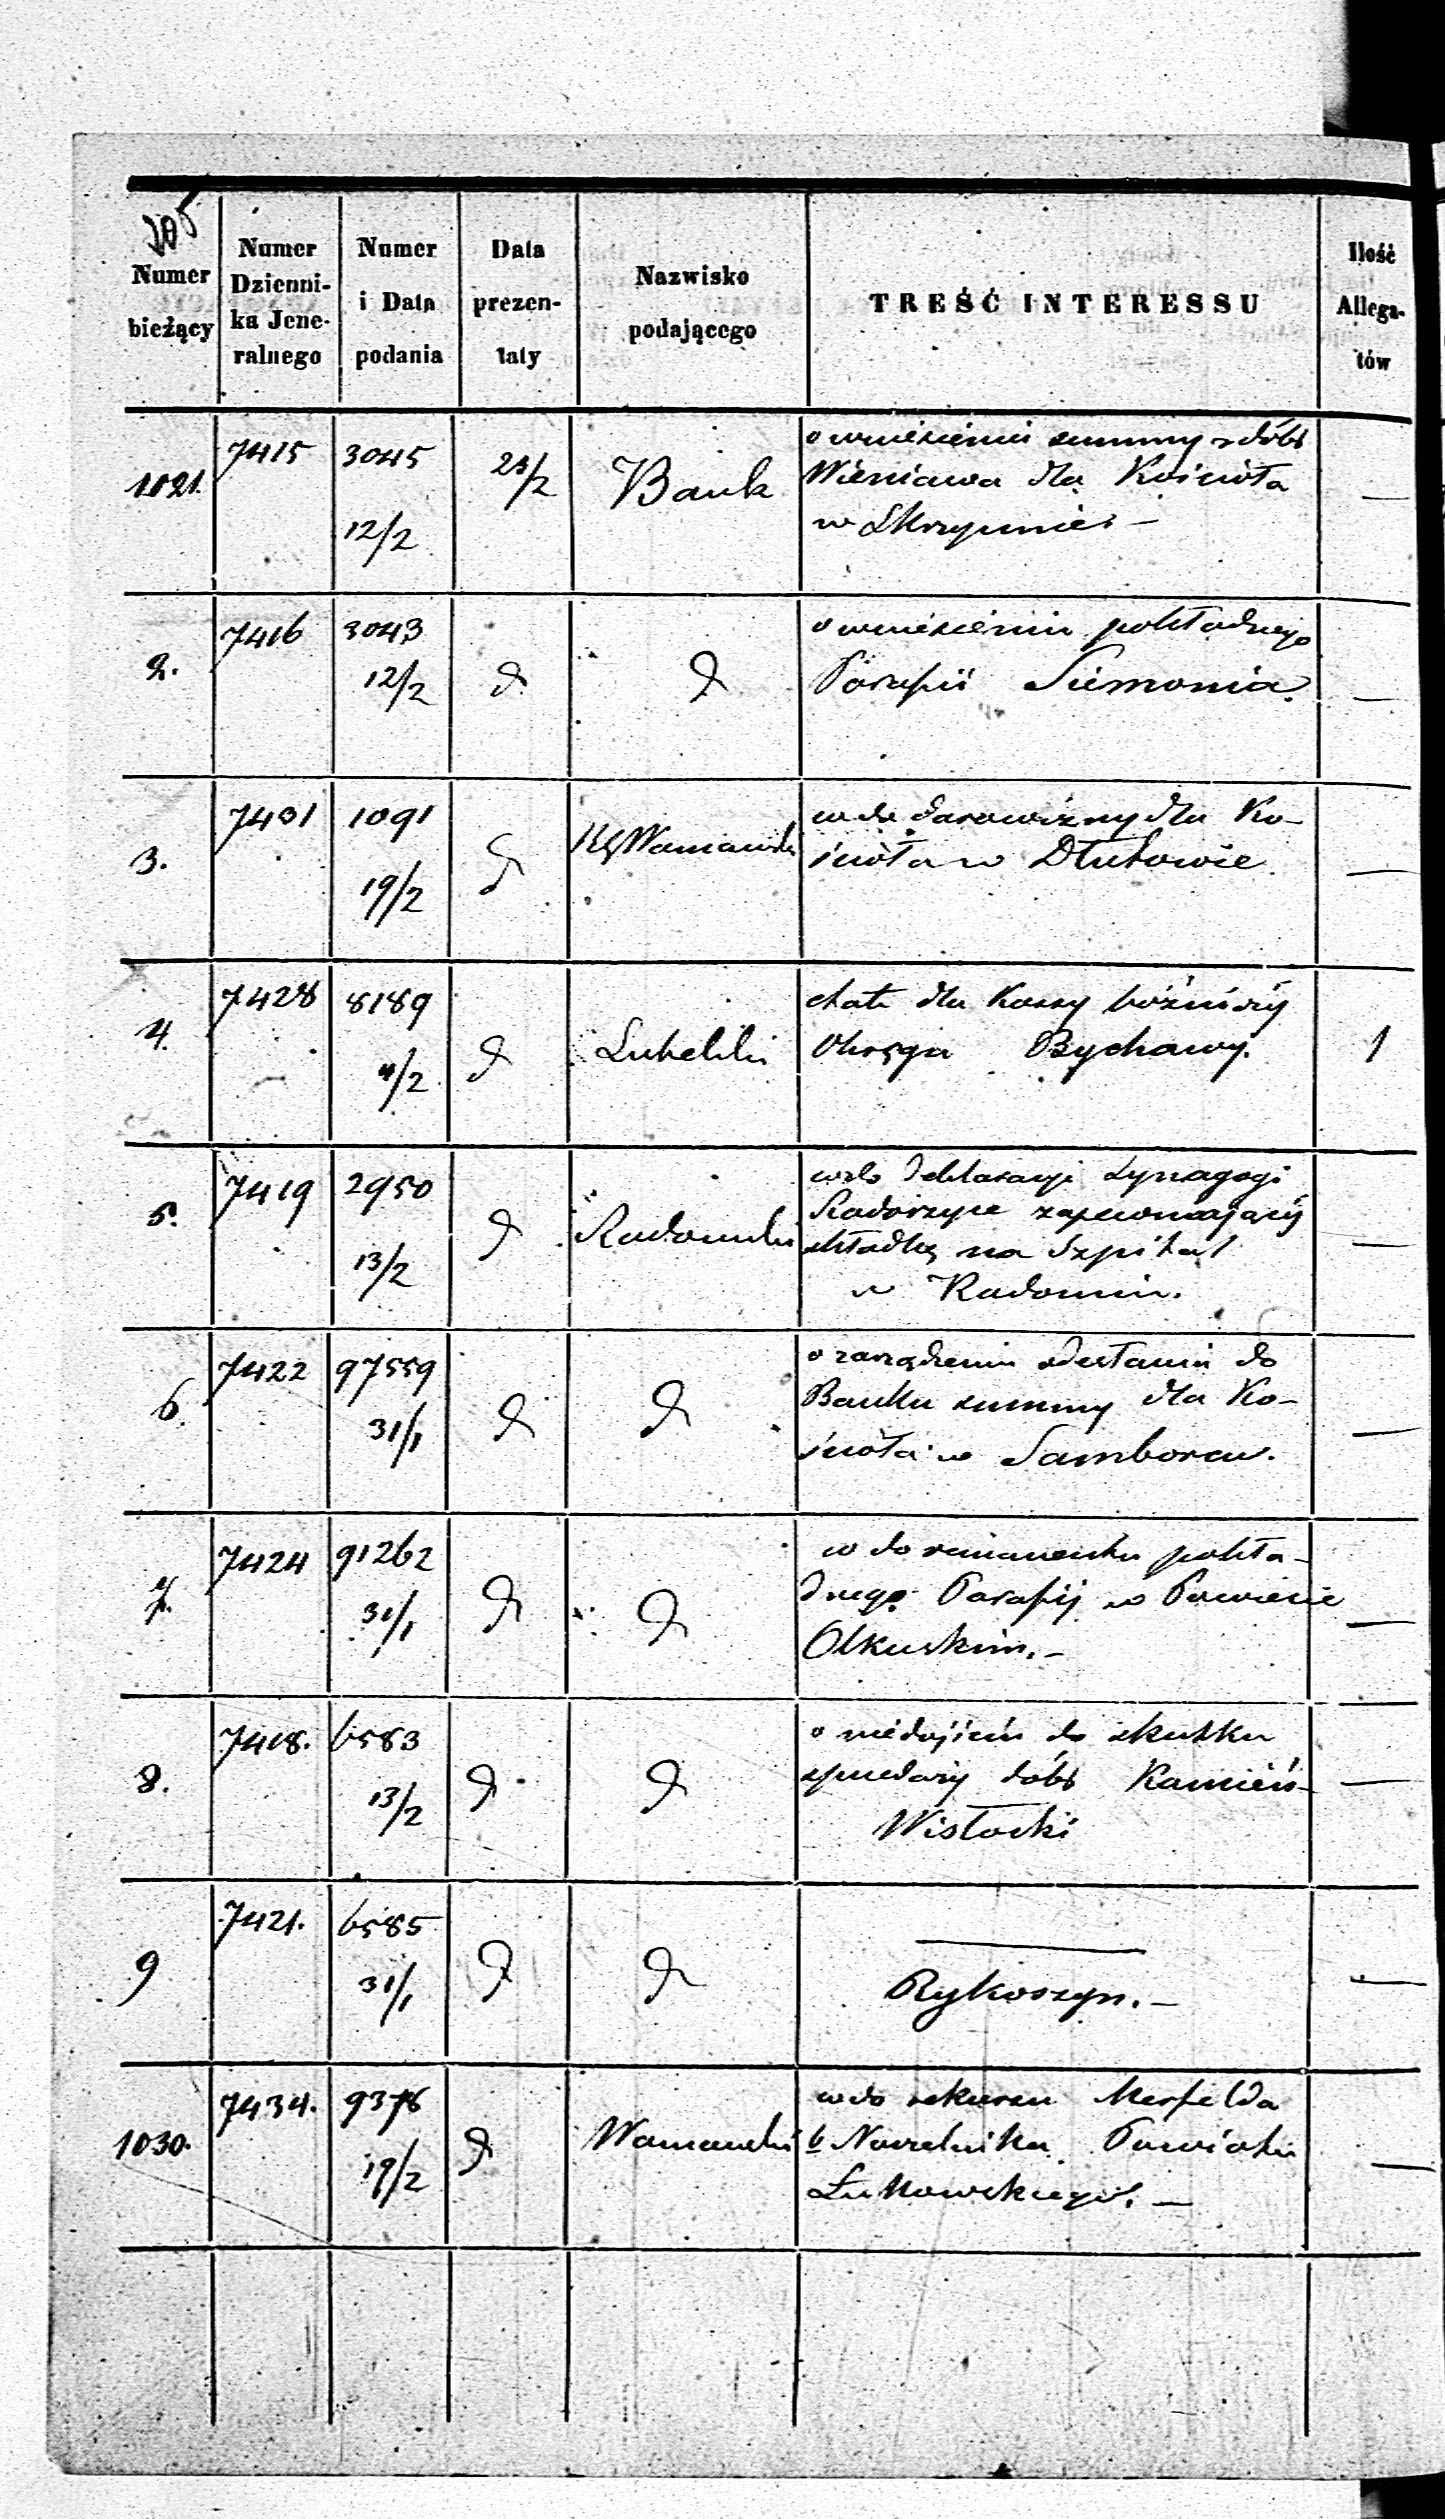 105
Numer bieżący
Numer Dziennika Jeneralnego
Numer i Data podania
Data prezentaty
Nazwisko podającego
TREŚĆ INTERESSU
Ilość Allegatów
1021. 7415 3045 12/2 23/2 Bank
o wniesieniu summy z dóbr
Wieniawa dla Kościoła
w Skrzynnie. —
—
2. 7416 3043 12/2 d d
o wniesieniu pokładnego
Parafii Siemonia.
—
3. 7401 1091 19/2 d
w do darowizny dla Ko-
ścioła w Dłutowie
—
4. 7428 8189 4/2 d Lubelski
etat dla Kassy bóżniczéj
Okręgu Bychawy.
1
5. 7419 2950 13/2 d Radomski
wdo deklaracyi Synagogi
Radoszyce zapewniającéj
składkę na Szpital
w Radomiu.
—
6. 7422 97559 31/1 d d
o zarządzeniu odesłania do
Banku summy dla Ko-
ścioła w Samborcu.
—
7. 7424 91262 31/1 d d
w do remanentu pokła-
dnego Parafij w Powiecie
Olkuskim. —
—
8. 7418. 6583 13/2 d d
o niedojściu do skutku
sprzedaży dóbr Kamień-
Wisłocki
—
9 7421. 6585 31/1 d d
———
Rykoszyn. —
—
1030. 7434. 9376 19/2 d Warszawski
wdo rekursu Merfelda
b Naczelnika Powiatu
Łukowskiego. —
—